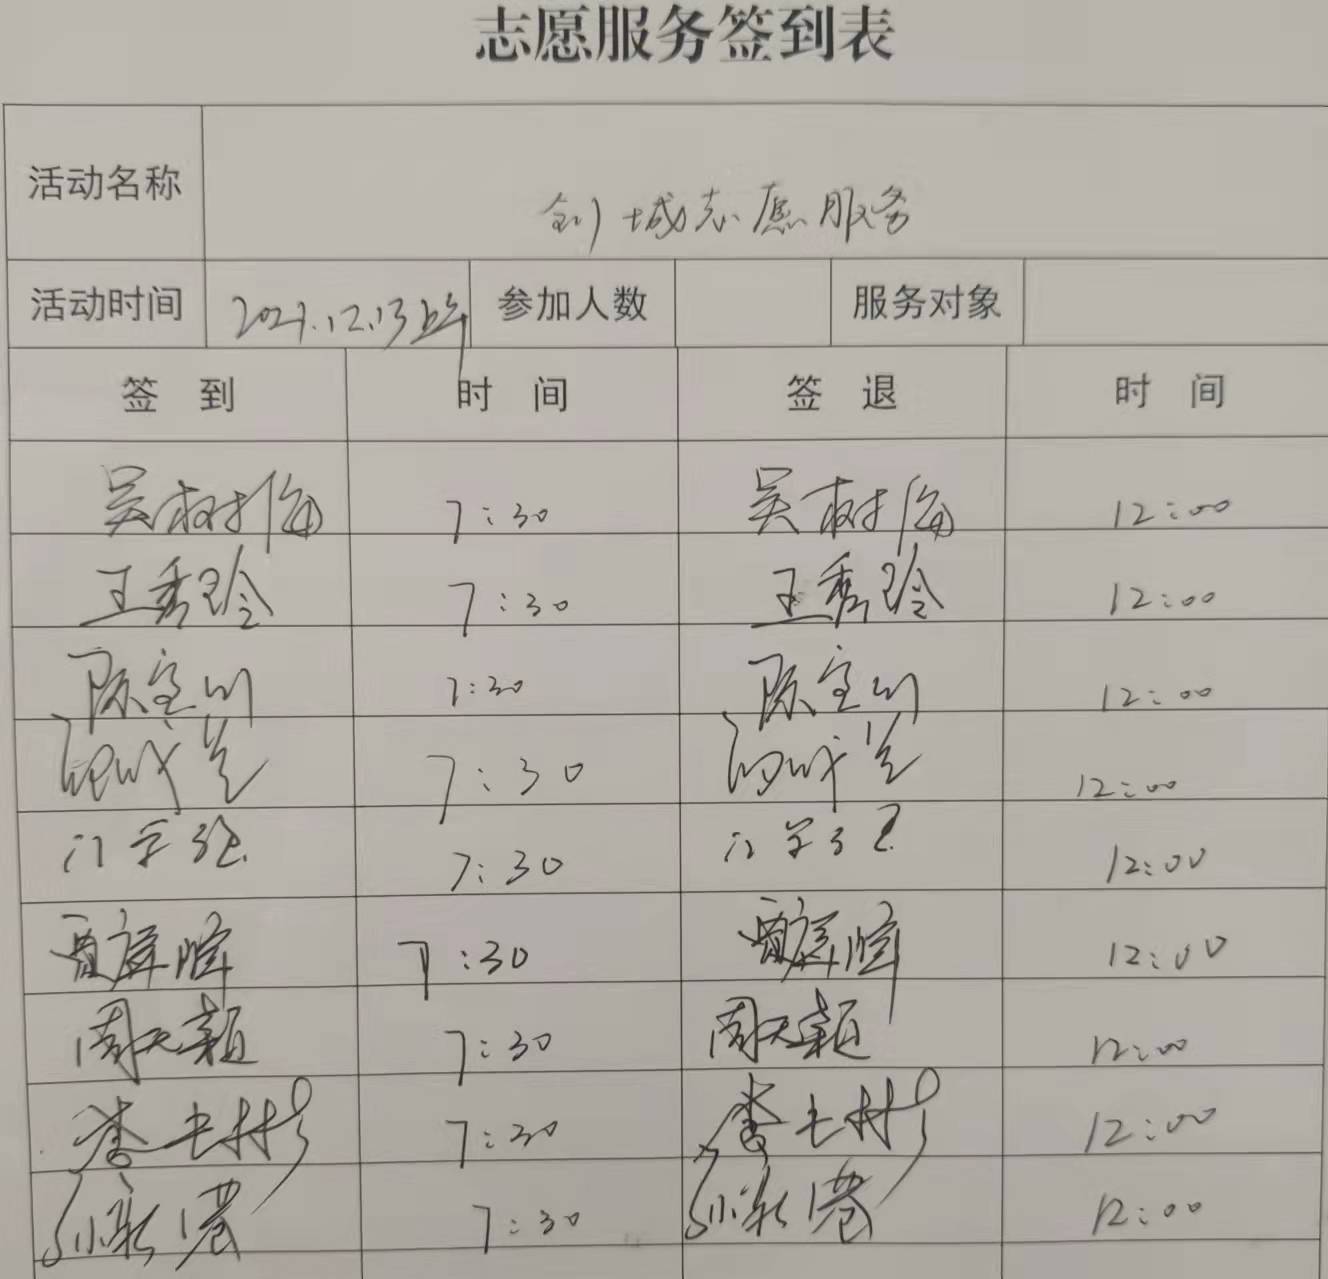 志愿服务签到表
活动名称 创城志愿服务
活动时间 2021.12.13 参加人数 服务对象
签到 时间 签退 时间
吴树海 7:30 吴树海 12:00
王秀玲 7:30 王秀玲 12:00
陈宝川 7:30 陈宝川 12:00
7:30 12:00
7:30 12:00
7:30 12:00
周天颖 7:30 周天颖 12:00
李士彬 7:30 李士彬 12:00
孙永港 7:30 孙永港 12:00